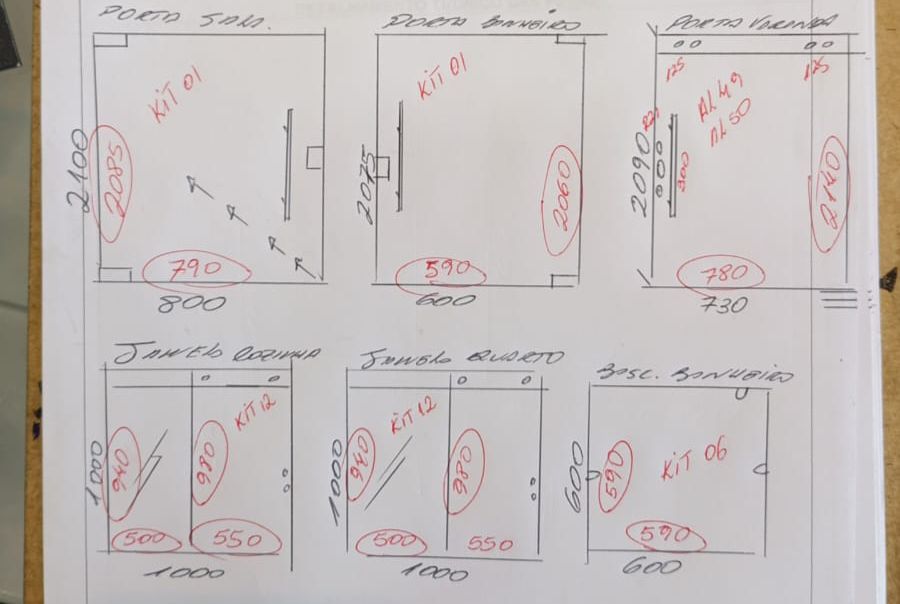 PORTA SALA.
KIT 01
2100
2085
790
800
PORTA BANHEIRO
KIT 01
2075
2060
590
600
PORTA VARANDA
175
175
AL 49
AL 50
2090
300
2140
780
730
JANELA COZINHA
KIT 12
1000
940
980
500
550
1000
JANELA QUARTO
KIT 12
1000
940
980
500
550
1000
BASC. BANHEIRO
600
590
KIT 06
590
600